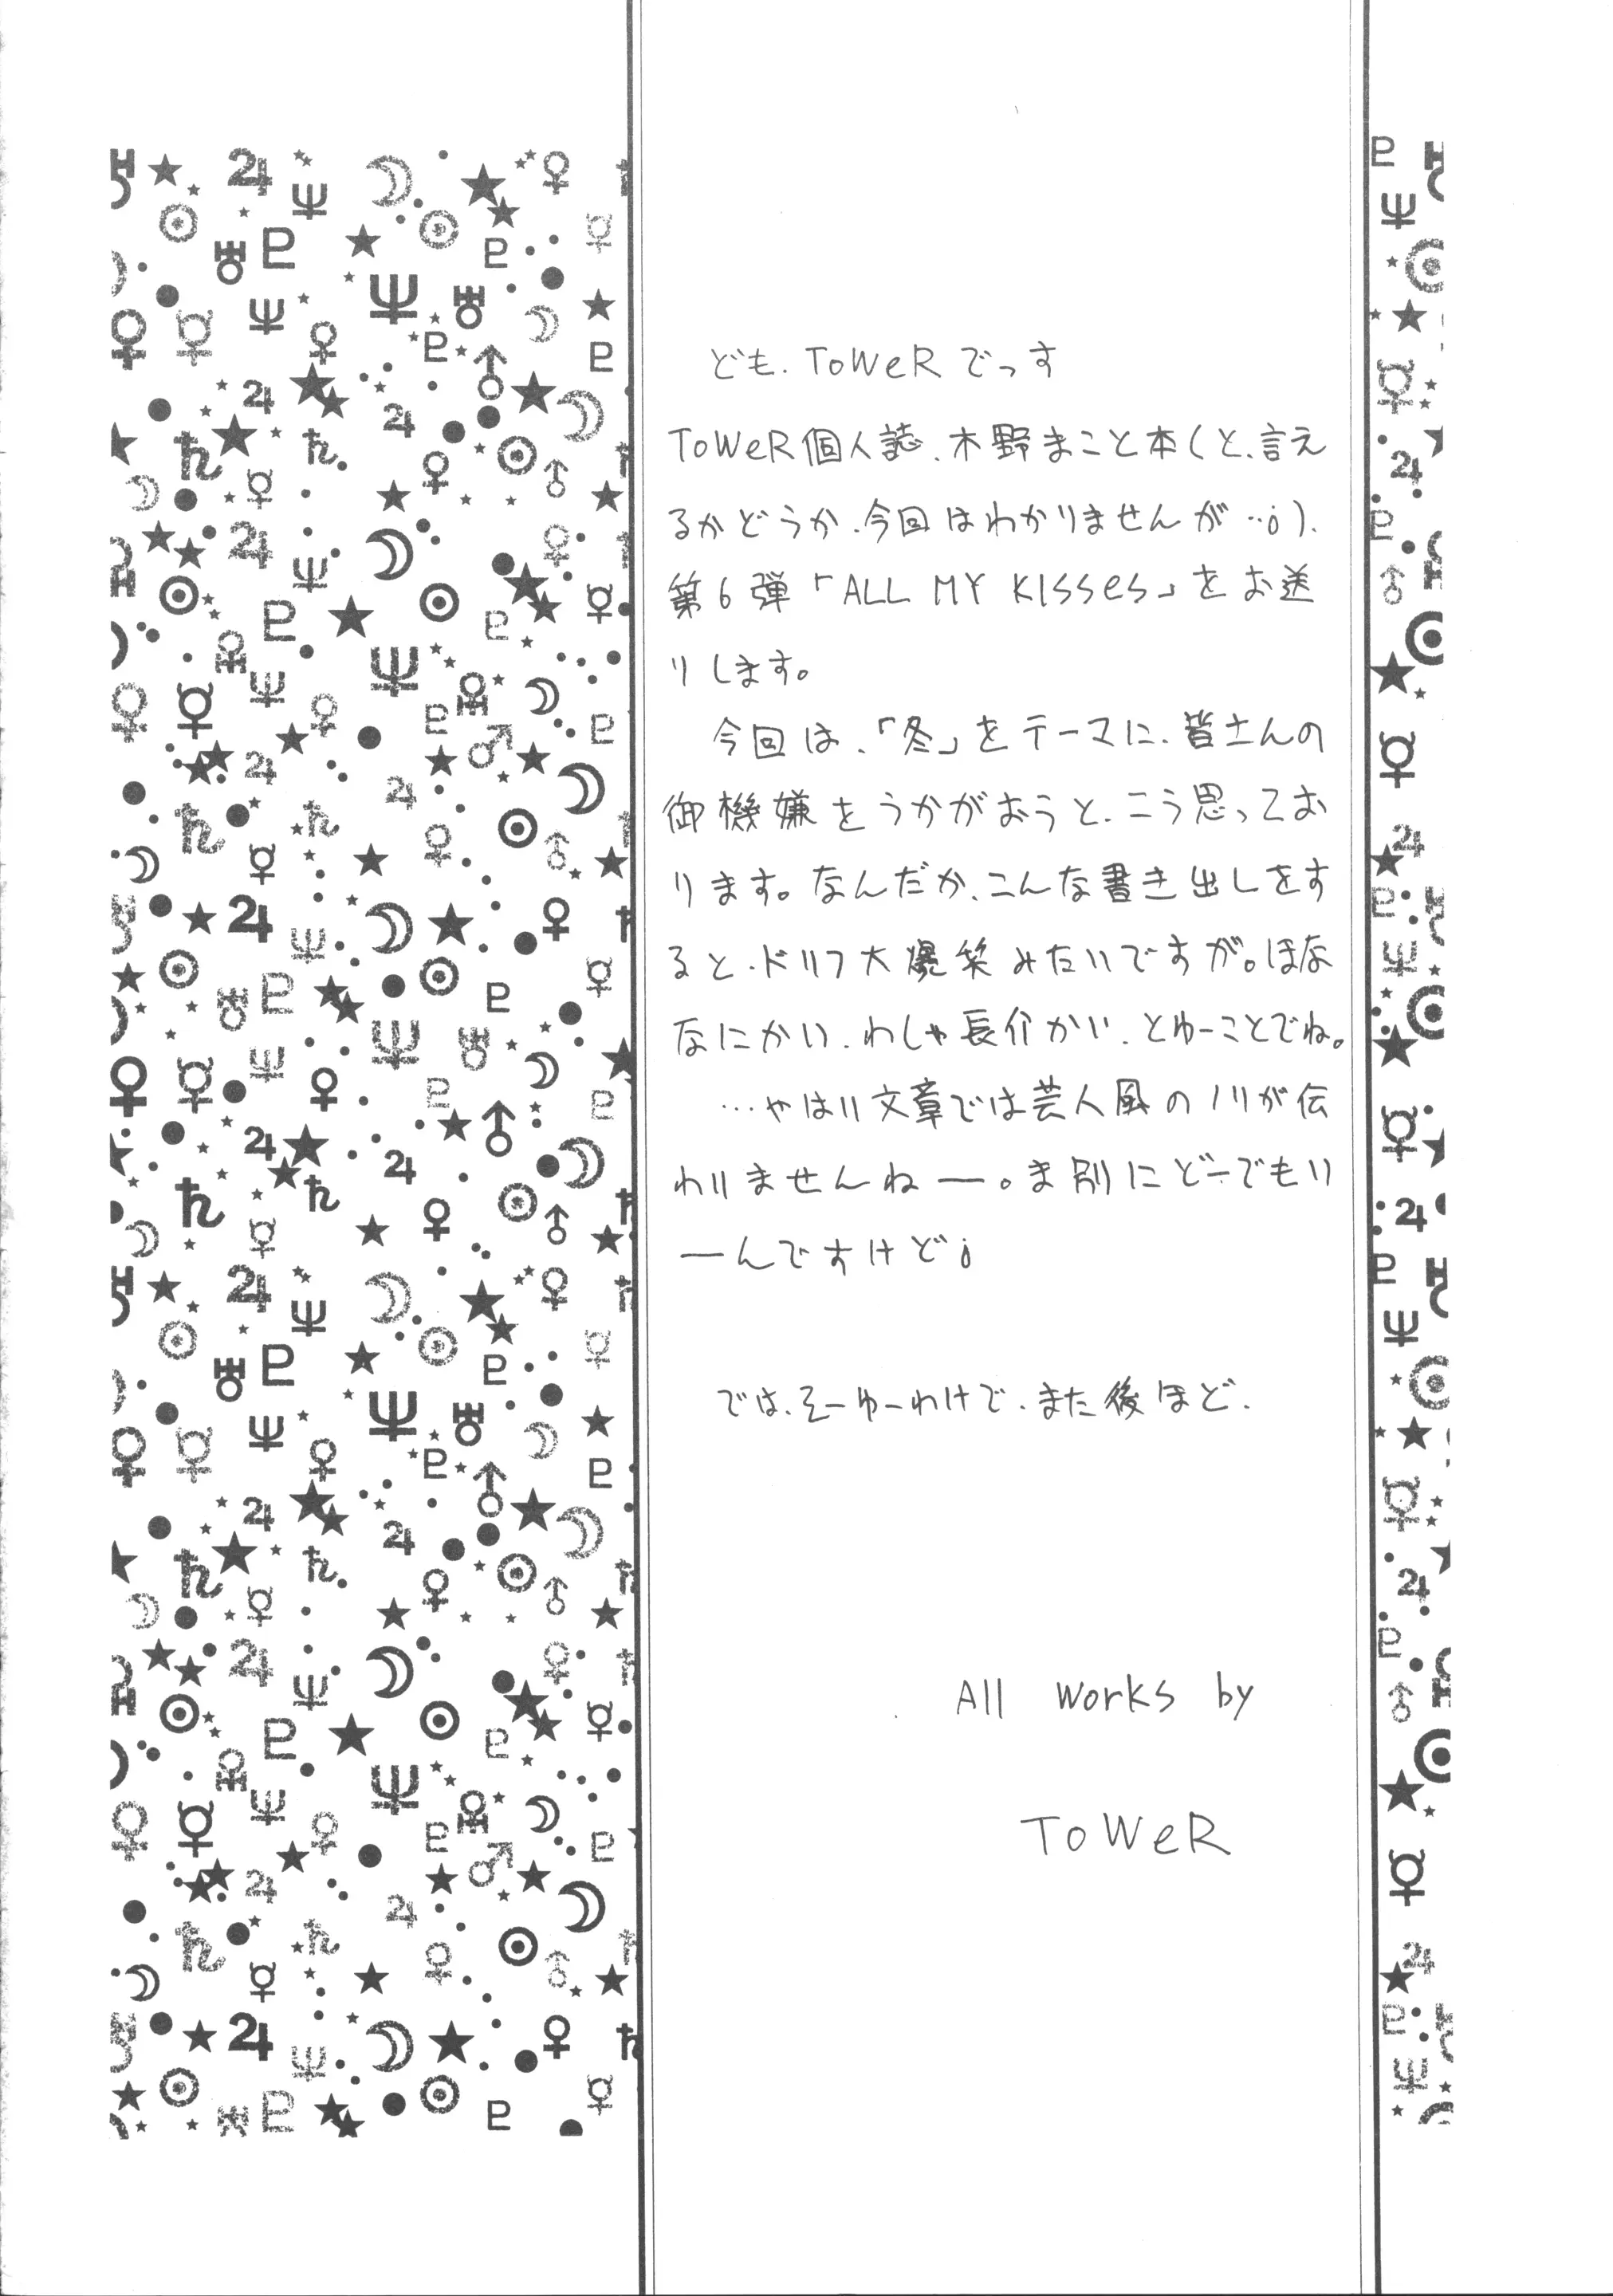 ども、ToWeRでっす
ToWeR個人誌、木野まこと本(と、言え
るかどうか、今回はわかりませんが…;)、
第6弾「ALL MY KISSes」をお送
りします。
今回は、「冬」をテーマに、皆さんの
御機嫌をうかがおうと、こう思ってお
ります。なんだか、こんな書き出しをす
ると、ドリフ大爆笑みたいですが。ほな
なにかい、わしゃ長介かい、とゆーことでね。
…やはり文章では芸人風のノリが伝
わりませんねー。ま別にどーでもい
ーんですけど;
では、そーゆーわけで、また後ほど、
All works by
ToWeR